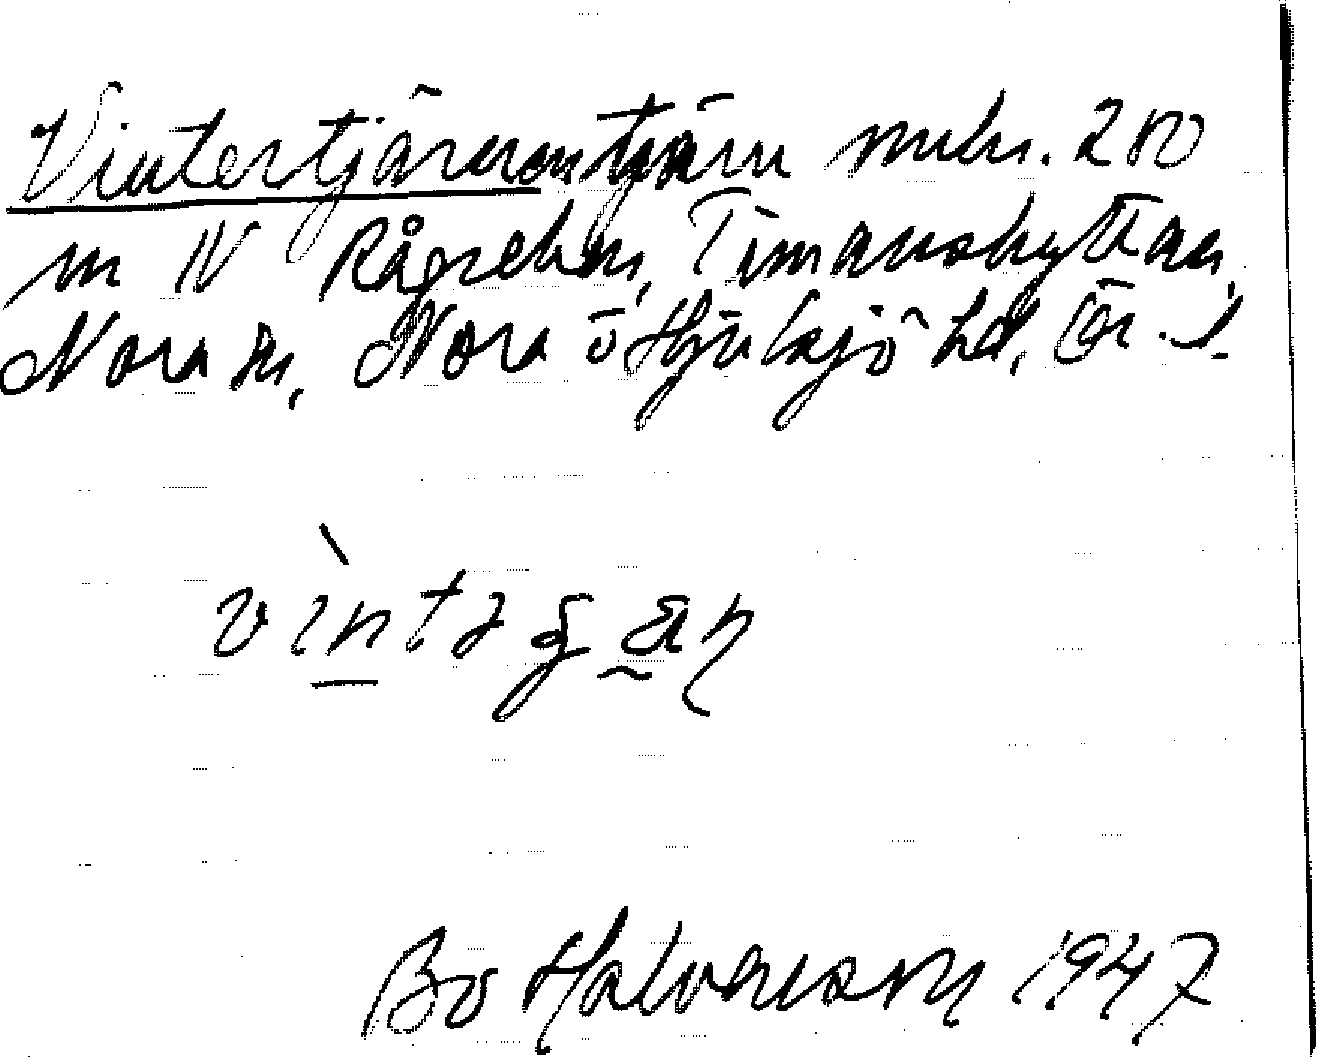 Vintertjärnen tjärn mitr. 200
m N Rågrehn, Timanshyttan,
Nora sn, Nora o Hjulsjö hd, Ör. l.
vìntəʒæɳ
Bo Halvarsson 1947